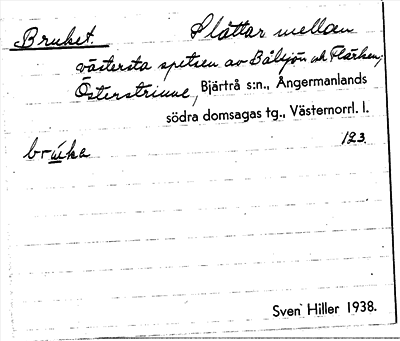 Bruket. Slåttar mellan
västersta spetsen av Bålsjön och Flärken,
Österstrinne, Bjärtrå s:n., Ångermanlands
södra domsagas tg., Västernorrl. l.
123.
Sven Hiller 1938.